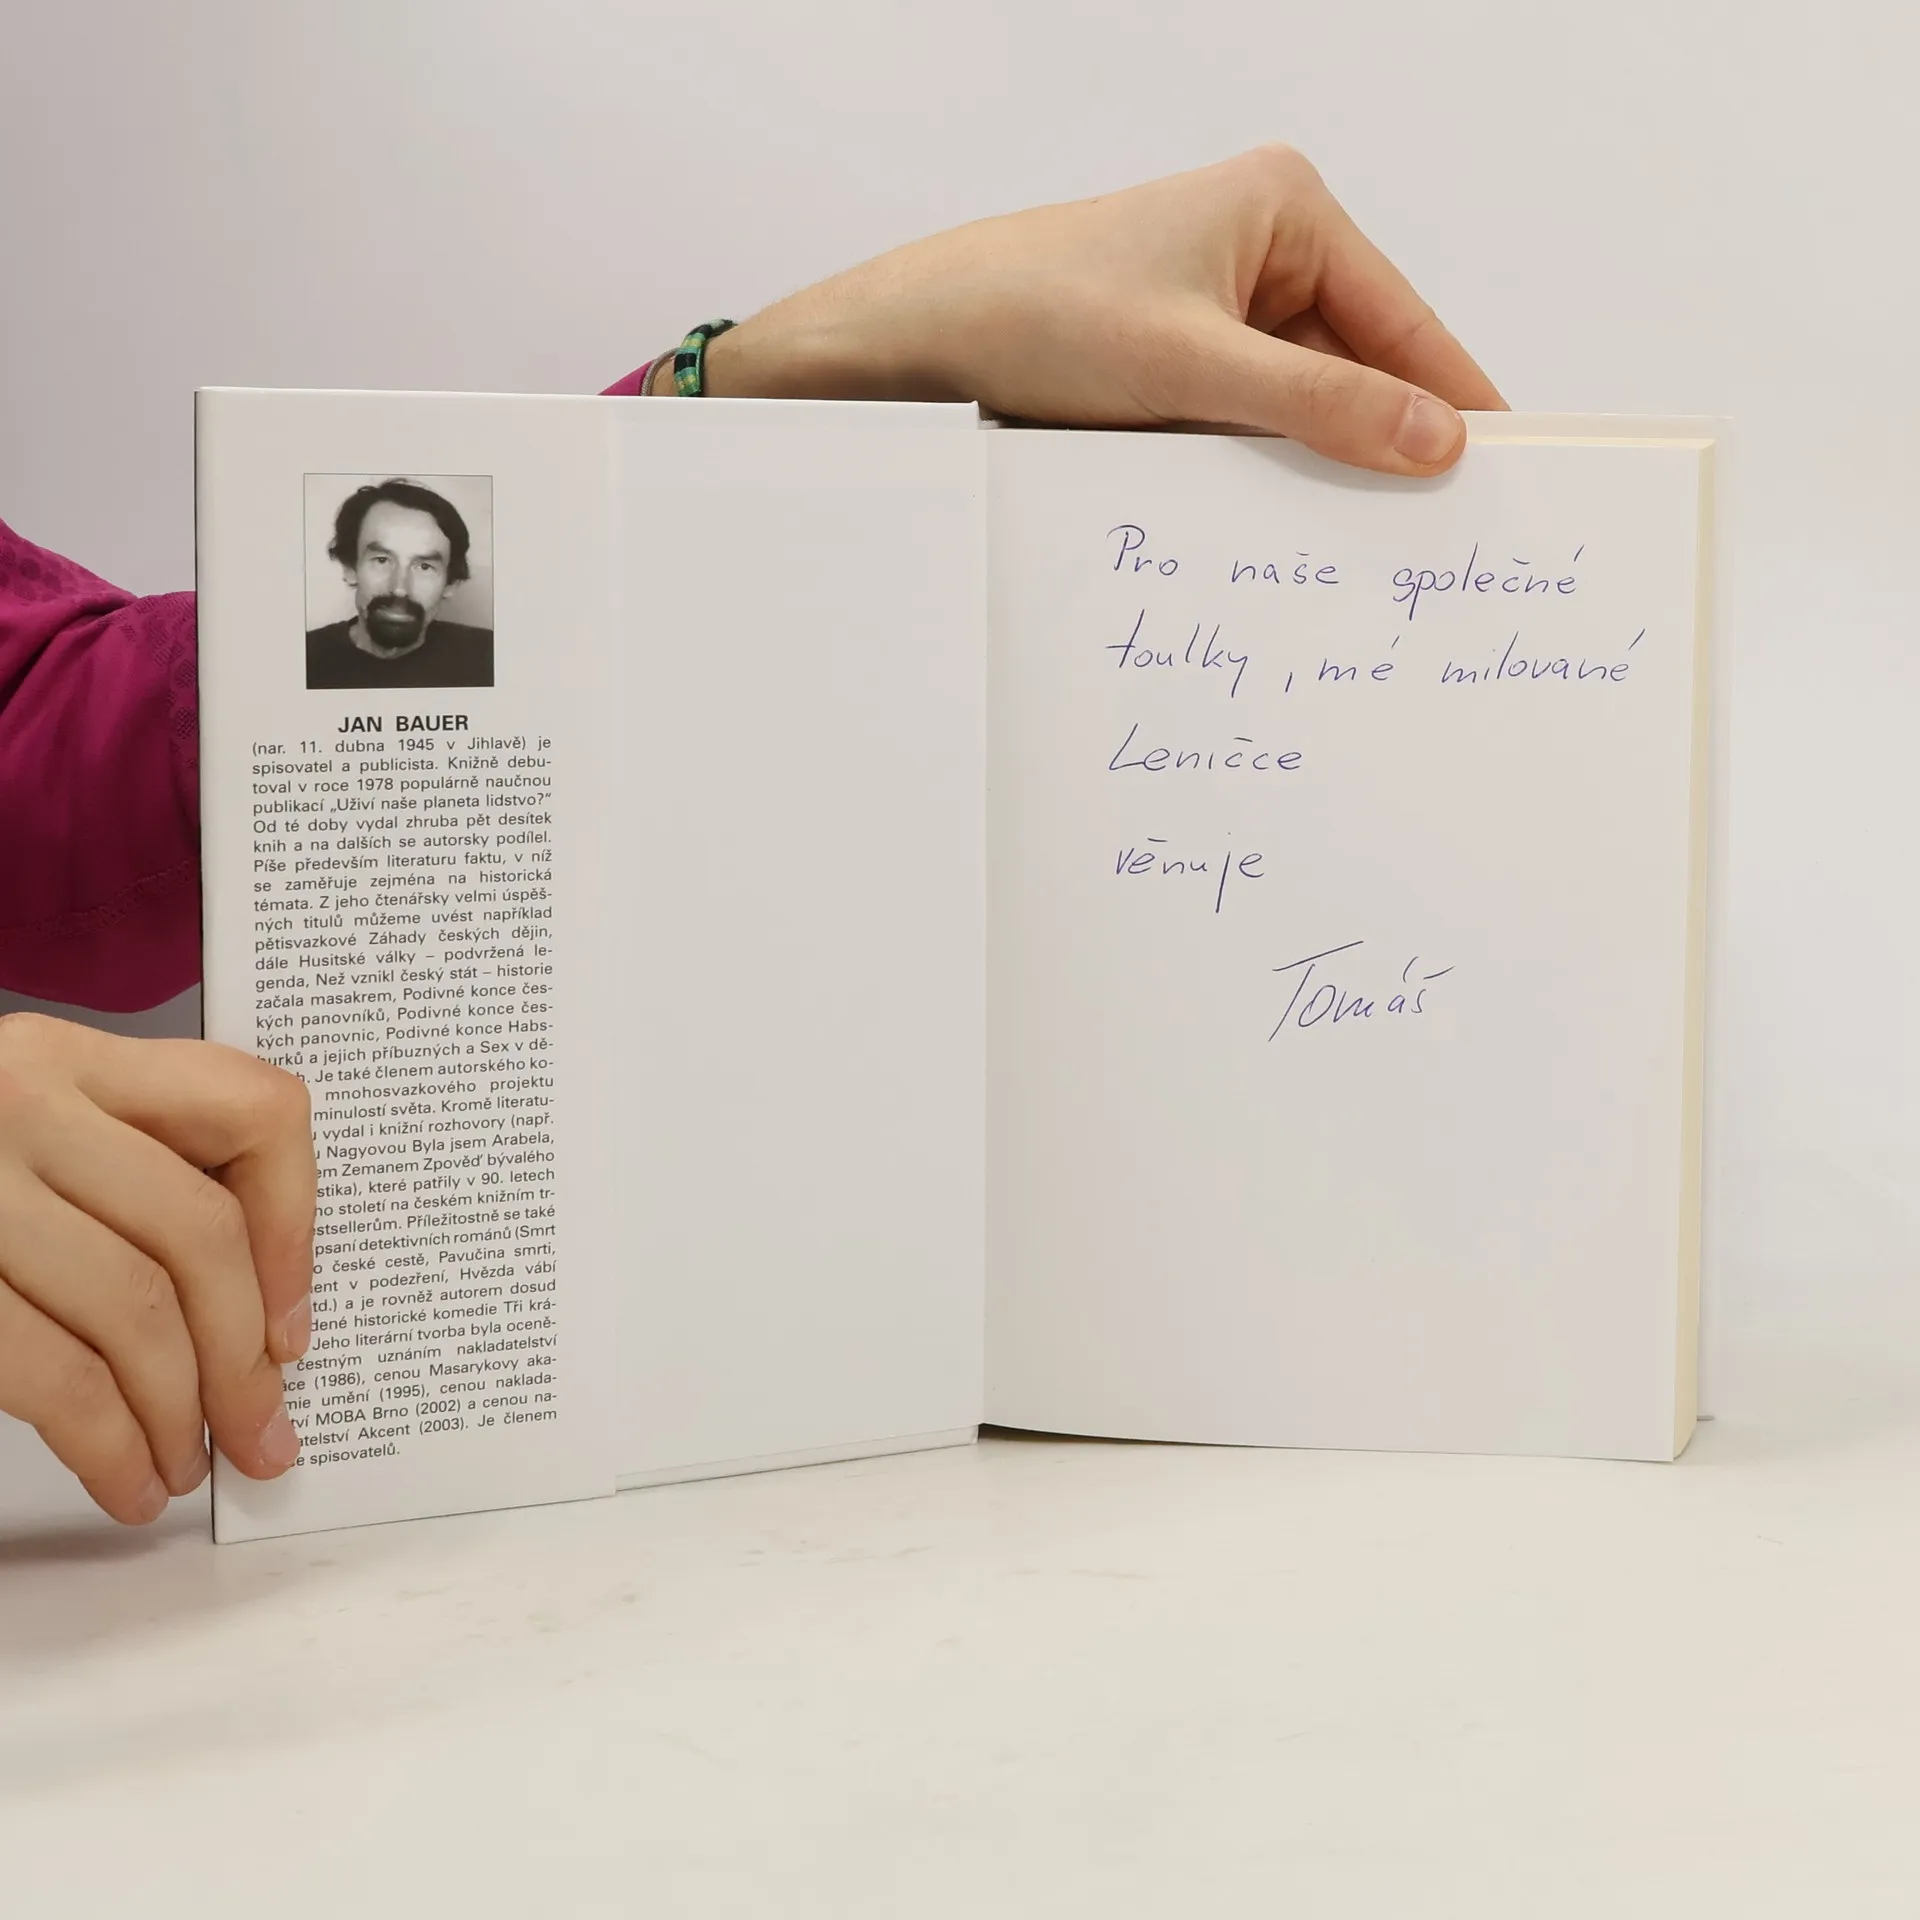 JAN BAUER
(nar. 11. dubna 1945 v Jihlavě) je
spisovatel a publicista. Knižně debu-
toval v roce 1978 populárně naučnou
publikací „Uživí naše planeta lidstvo?"
Od té doby vydal zhruba pět desítek
knih a na dalších se autorsky podílel.
Píše především literaturu faktu, v níž
se zaměřuje zejména na historická
témata. Z jeho čtenářsky velmi úspěš-
ných titulů můžeme uvést například
pětisvazkové Záhady českých dějin,
dále Husitské války – podvržená le-
genda, Než vznikl český stát – historie
začala masakrem, Podivné konce čes-
kých panovníků, Podivné konce čes-
kých panovnic, Podivné konce Habs-
burků a jejich příbuzných a Sex v dě-
h. Je také členem autorského ko-
mnohosvazkového projektu
minulostí světa. Kromě literatu-
vydal i knižní rozhovory (např.
u Nagyovou Byla jsem Arabela,
em Zemanem Zpověď bývalého
stika), které patřily v 90. letech
ho století na českém knižním tr-
estsellerům. Příležitostně se také
psaní detektivních románů (Smrt
o české cestě, Pavučina smrti,
ent v podezření, Hvězda vábí
td.) a je rovněž autorem dosud
dené historické komedie Tři krá-
Jeho literární tvorba byla oceně-
čestným uznáním nakladatelství
áce (1986), cenou Masarykovy aka-
mie umění (1995), cenou naklada-
tví MOBA Brno (2002) a cenou na-
atelství Akcent (2003). Je členem
e spisovatelů.
Pro naše společné
toulky, mé milované
Leničce
věnuje
Tomáš